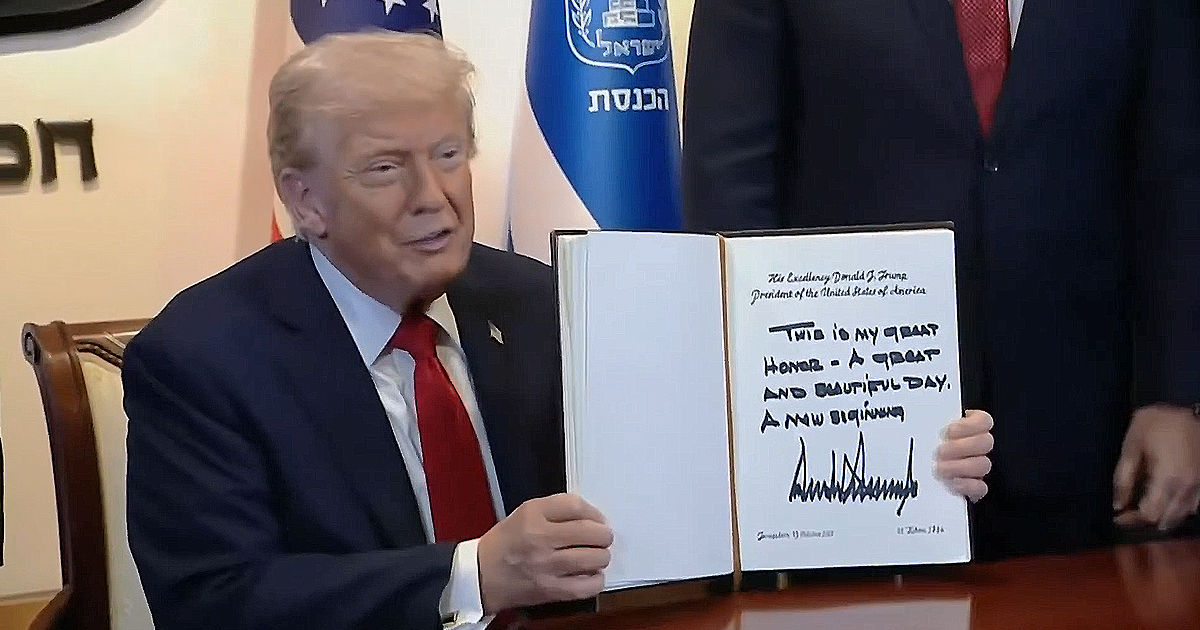 ישראל
הכנסת
His Excellency Donald J. Trump
President of the United States of America
THIS IS MY GREAT
HONOR - A GREAT
AND BEAUTIFUL DAY.
A NEW BEGINNING
Jerusalem, 13